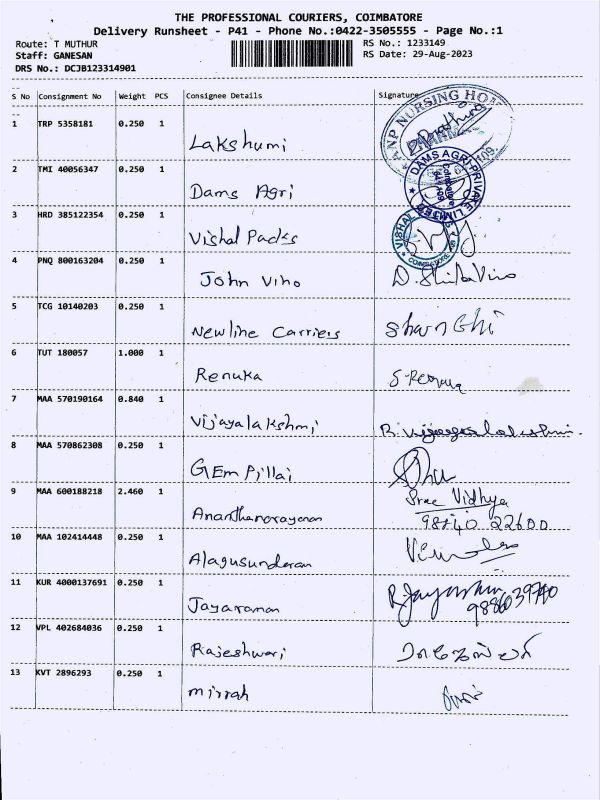 THE PROFESSIONAL COURIERS, COIMBATORE
Delivery Runsheet - P41 - Phone No.:0422-3505555 - Page No.:1
Route: T MUTHUR RS No.: 1233149
Staff: GANESAN RS Date: 29-Aug-2023
DRS No.: DCJB123314901
S No Consignment No Weight PCS Consignee Details Signature
1 TRP 5358181 0.250 1 Lakshumi ANP NURSING HO
2 TMI 40056347 0.250 1 Dams Agri DAMS AGRI PRIVATE LIMITED
3 HRD 385122354 0.250 1 Vishal Packs VISHAL
4 PNQ 800163204 0.250 1 John Vino
5 TCG 10140203 0.250 1 Newline Carriers
6 TUT 180057 1.000 1 Renuka
7 MAA 570190164 0.840 1 Vijayalakshmi
8 MAA 570862308 0.250 1 GEm Pillai
9 MAA 600188218 2.460 1 Ananthanarayanan Sree Vidhya
10 MAA 102414448 0.250 1 Alagusundaran
11 KUR 4000137691 0.250 1 Jayaraman
12 VPL 402684036 0.250 1 Rajeshwari
13 KVT 2896293 0.250 1 mirrah